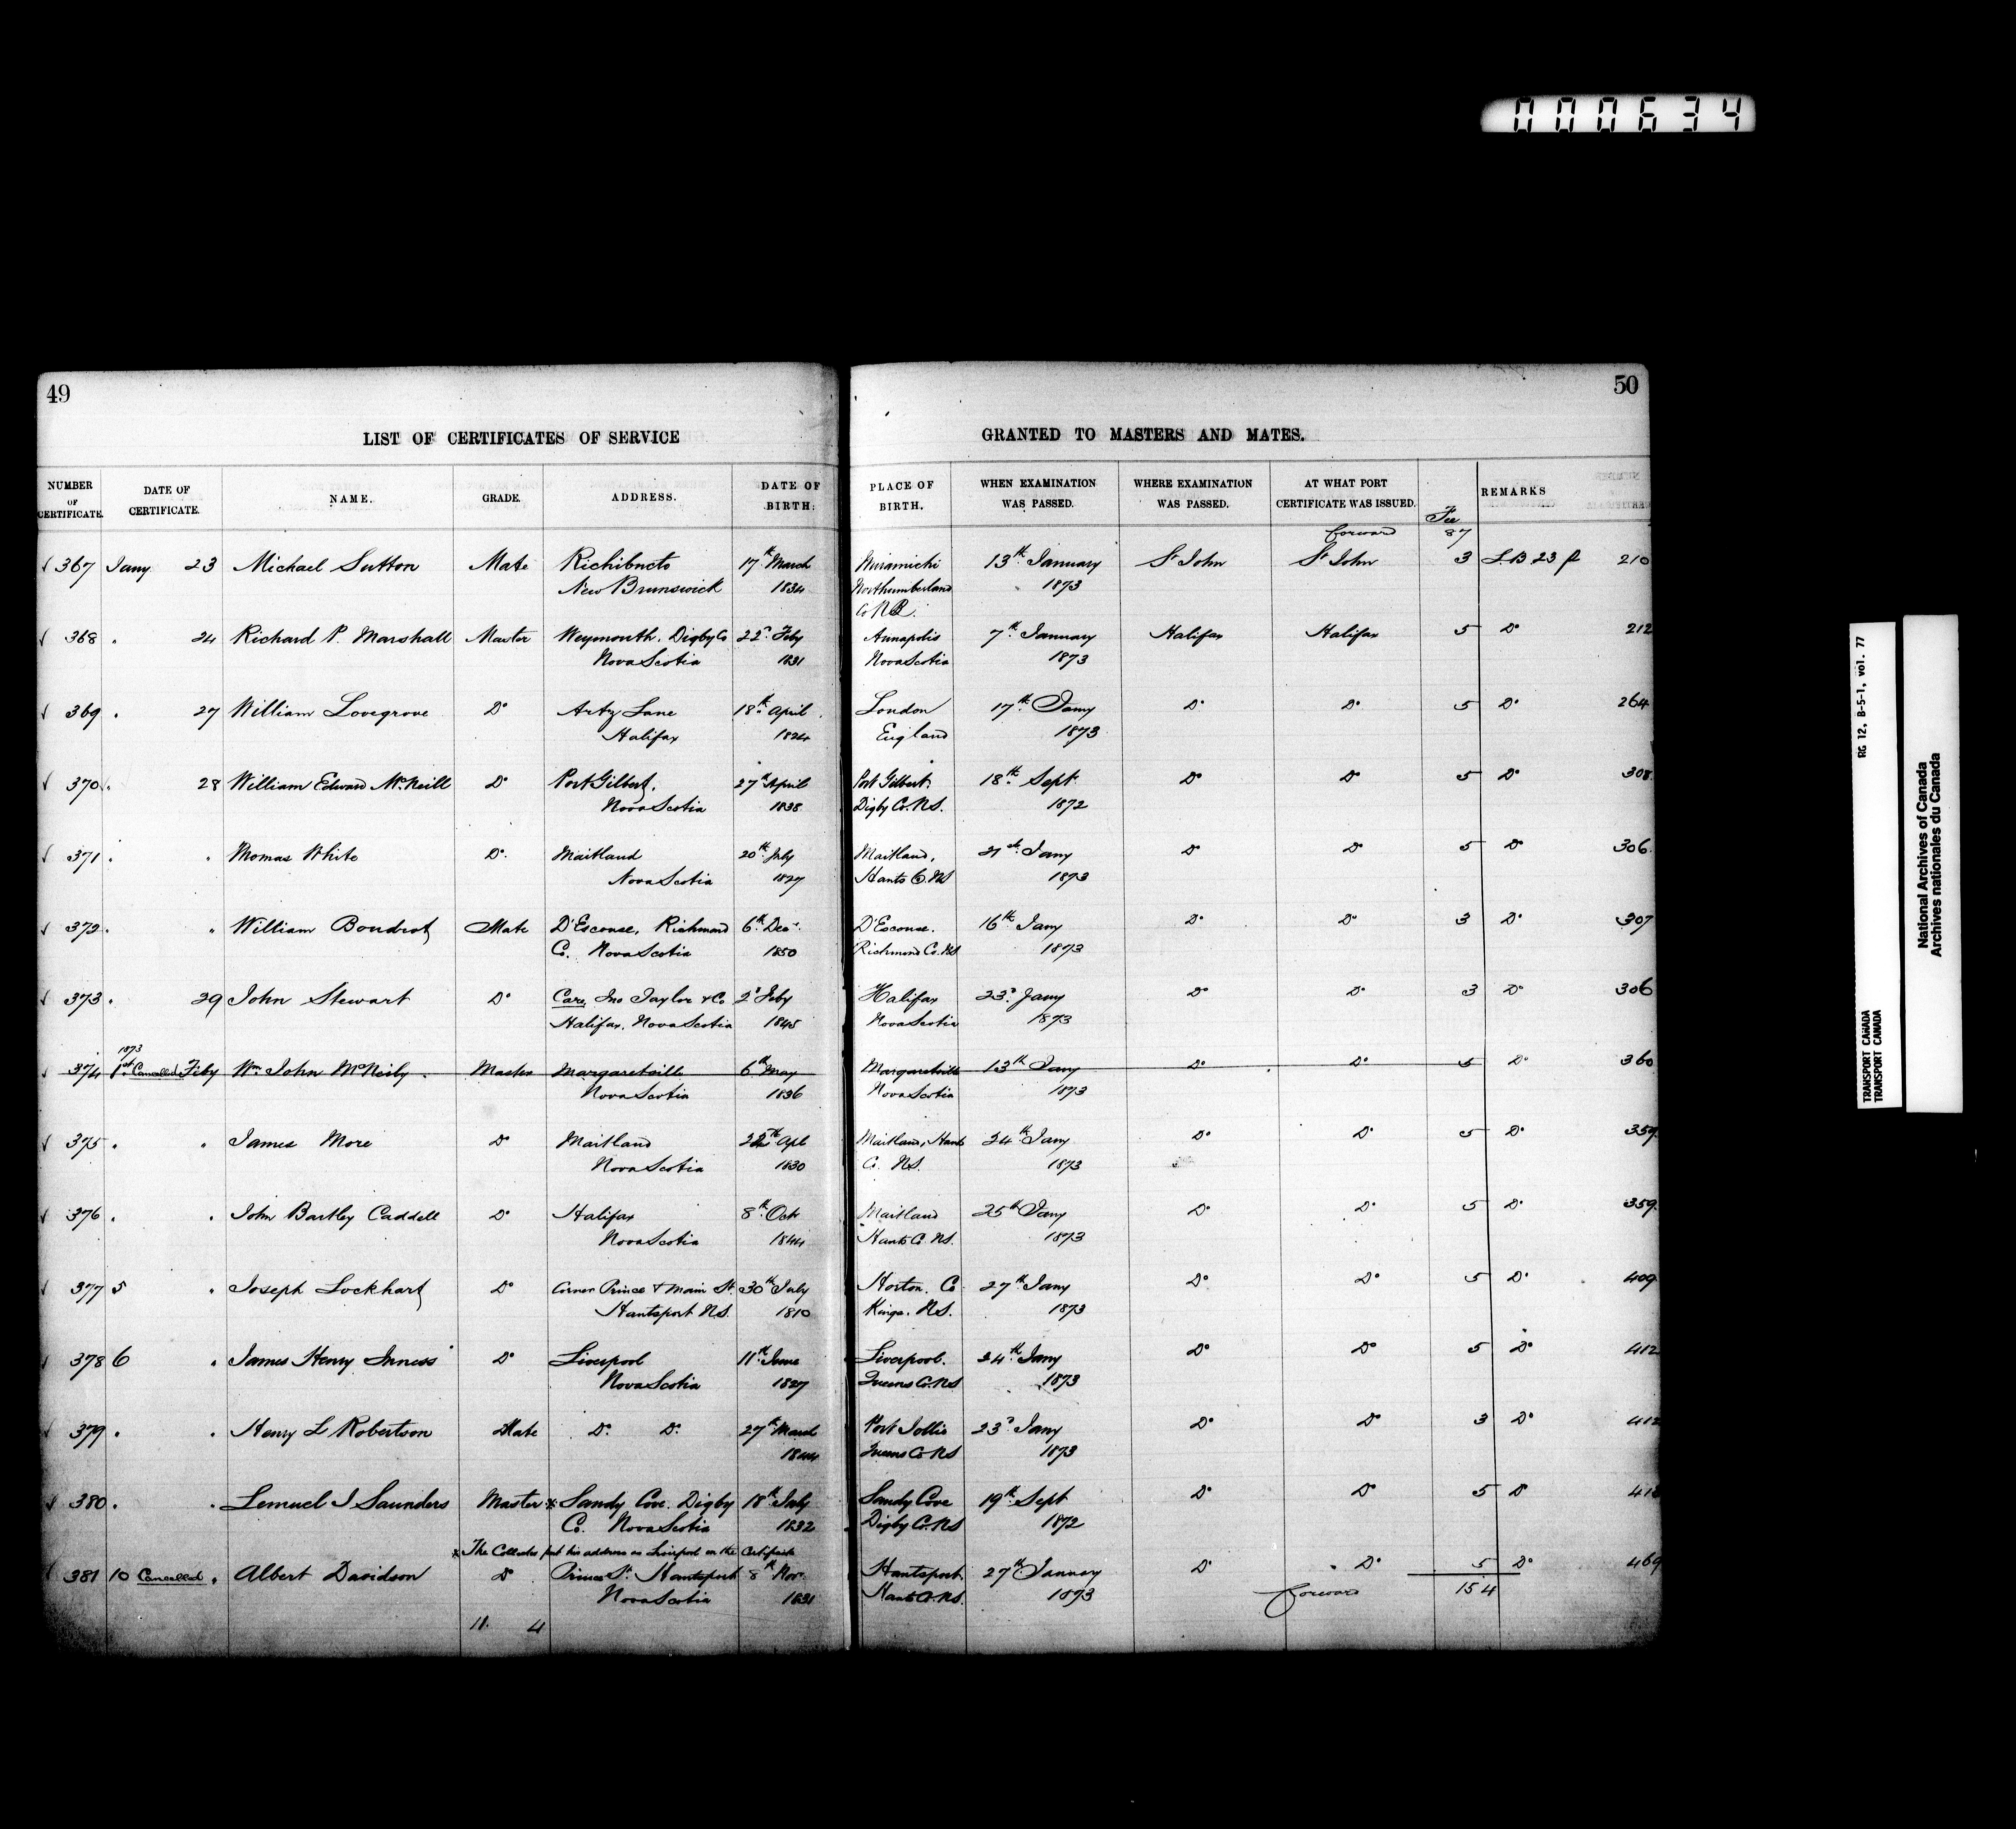 000634
49
50
LIST OF CERTIFICATES OF SERVICE GRANTED TO MASTERS AND MATES.
NUMBER OF CERTIFICATE. DATE OF CERTIFICATE. NAME. GRADE. ADDRESS. DATE OF BIRTH. PLACE OF BIRTH. WHEN EXAMINATION WAS PASSED. WHERE EXAMINATION WAS PASSED. AT WHAT PORT CERTIFICATE WAS ISSUED. Fee REMARKS
forward 87
367 Jany 23 Michael Sutton Mate Richibucto 17th March Miramichi 13th January St John St John 3 L.B 23 p 210
New Brunswick 1834 Northumberland 1873
Co N.B.
368 " 24 Richard P. Marshall Master Weymouth. Digby Co 22d Feby Annapolis 7th January Halifax Halifax 5 Do 212
Nova Scotia 1831 Nova Scotia 1873
369 " 27 William Lovegrove Do Artz Lane 18th April London 17th Jany Do Do 5 Do 264
Halifax 1824 England 1873
370 " 28 William Edward McNeill Do Port Gilbert, 27th April Port Gilbert. 18th Sept Do Do 5 Do 308
Nova Scotia 1838 Digby Co. N.S. 1872
371 " " Thomas White Do Maitland 20th July Maitland, 21st Jany Do Do 5 Do 306
Nova Scotia 1827 Hants Co. NS 1873
372 " " William Boudrot Mate D'Escouse, Richmond 6th Decr D'Escouse. 16th Jany Do Do 3 Do 307
Co. Nova Scotia 1850 Richmond Co. NS 1873
373 " 29 John Stewart Do Care, Jno Taylor & Co 2d Feby Halifax 23d Jany Do Do 3 Do 306
Halifax, Nova Scotia 1845 Nova Scotia 1873
1873
374 1st Cancelled Feby Wm John McNeily Master Margaretsville 6th May Margaretsville 13th Jany Do Do 5 Do 360
Nova Scotia 1836 Nova Scotia 1873
375 " " James More Do Maitland Apl Maitland, Hants 24th Jany Do Do 5 Do 359
Nova Scotia 1830 Co. NS. 1873
376 " " John Bartley Caddell Do Halifax 8th Oct Maitland 25th Jany Do Do 5 Do 359
Nova Scotia 1844 Hants Co. NS. 1873
377 5 " Joseph Lockhart Do Corner Prince & Main St. 30th July Horton. Co 27th Jany Do Do 5 Do 409
Hantsport N.S. 1810 Kings. N.S. 1873
378 6 " James Henry Inness Do Liverpool 11th June Liverpool. 24th Jany Do Do 5 Do 412
Nova Scotia 1827 Queens Co. NS 1873
379 " " Henry L Robertson Mate Do Do 27th March Port Jollie 23d Jany Do Do 3 Do 412
1844 Queens Co NS 1873
380 " " Lemuel J Saunders Master * Sandy Cove. Digby 18th July Sandy Cove 19th Sept Do Do 5 Do
Co. Nova Scotia 1832 Digby Co. NS 1872
* The Collector put his address as Liverpool on the Certificate
381 10 Cancelled " Albert Davidson Do Prince St. Hantsport 8th Nov. Hantsport 27th January Do Do 5 Do 469
Nova Scotia 1831 Hants Co. NS. 1873 forward 154
11. 4
RG 12, B-5-1, vol. 77
TRANSPORT CANADA
TRANSPORT CANADA
National Archives of Canada
Archives nationales du Canada